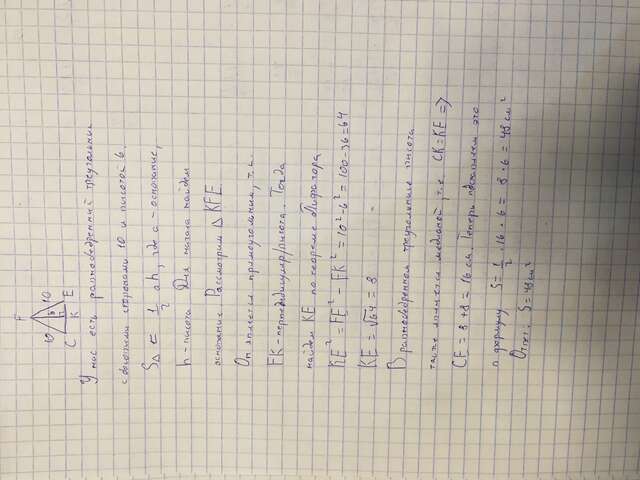 F
10 6 10
C K E
У нас есть равнобедренный треугольник
с боковыми сторонами 10 и высотой 6.
S△ = 1/2 ah, где a - основание,
h - высота Для начала найдем
основание. Рассмотрим △ KFE
Он является прямоугольным, т.к.
FK - перпендикуляр/высота. Тогда
найдем KE по теореме Пифагора
KE² = FE² - FK² = 10² - 6² = 100 - 36 = 64
KE = √64 = 8
В равнобедренном треугольнике высота
также является медианой, т.е. CK = KE =>
CE = 8 + 8 = 16 см. Теперь подставляем это
в формулу S = 1/2 · 16 · 6 = 8 · 6 = 48 см²
Ответ: S = 48 см²